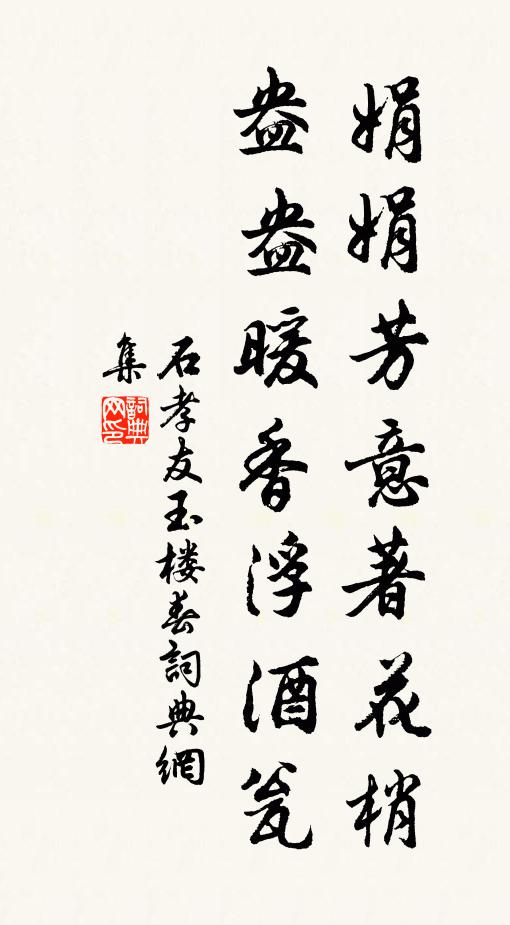 娟娟芳意著花梢
盎盎暖香浮酒瓮
石孝友玉楼春詞典網
集
詞典網印